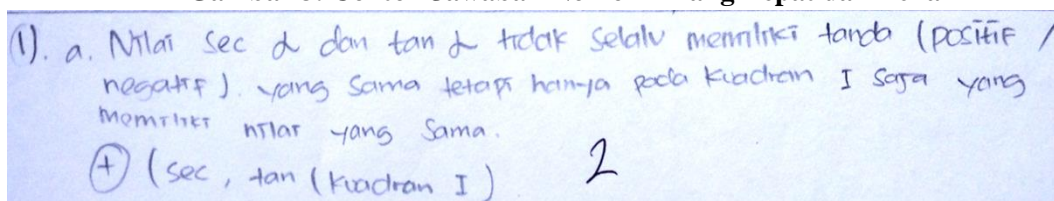 (1). a. Nilai sec α dan tan α tidak selalu memiliki tanda (positif /
negatif). yang sama tetapi hanya pada kuadran I saja yang
memiliki nilai yang sama.
⊕ (sec, tan (kuadran I) 2